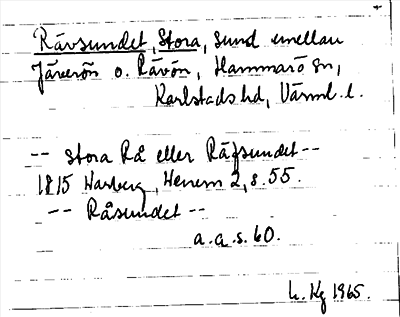 Rävsundet, Stora, sund emellan
Järverön o. Rävön, Hammarö sn,
Karlstads hd, Värml. l.
-- Stora Rå eller Räfsundet --
1815 Warberg, Herrm 2, s. 55.
-- Råsundet --
a.a.s. 60.
1965.